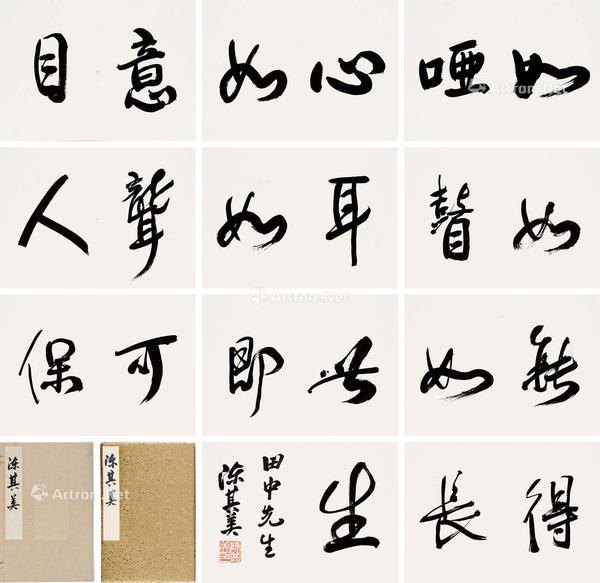 如啞
心如
意目
如瞽
耳如
聾人
能如
此即
可保
得長
生
田中先生
陳其美
陳其美
陳其美
Artron.Net
Artron.Net
Artron.Net
Artron.Net